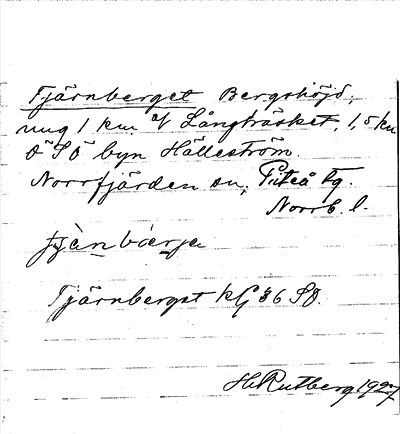 Tjärnberget Bergshöjd,
omg 1 km. V Långträsket, 1,5 km
Ö S Ö byn Hälleström.
Norrfjärden sn, Piteå tg.
Norrb. l.
Tjärnberget kG 36 SO.
H. Rutberg 1927